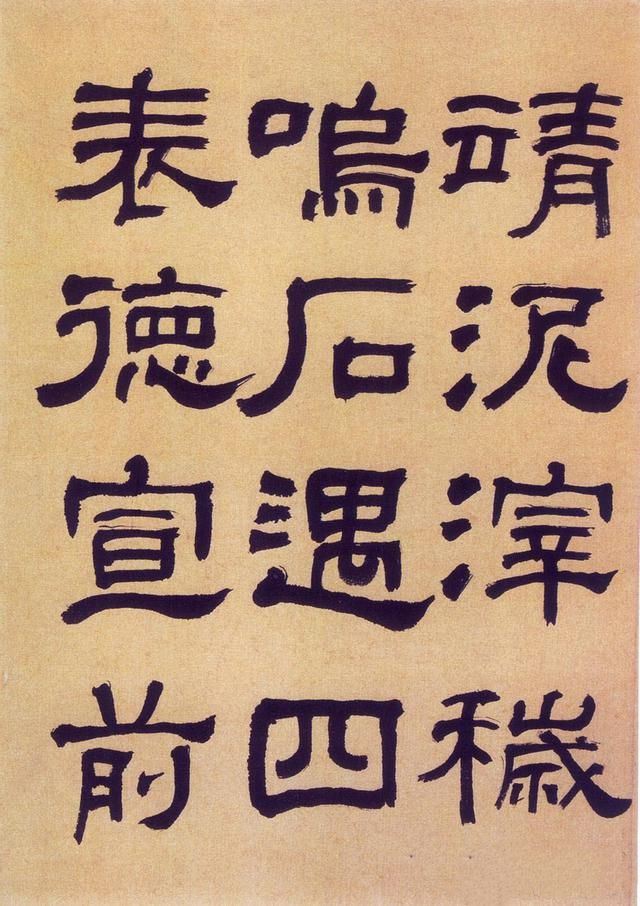 靖泥滓穢
嗚石遇四
表德宣前